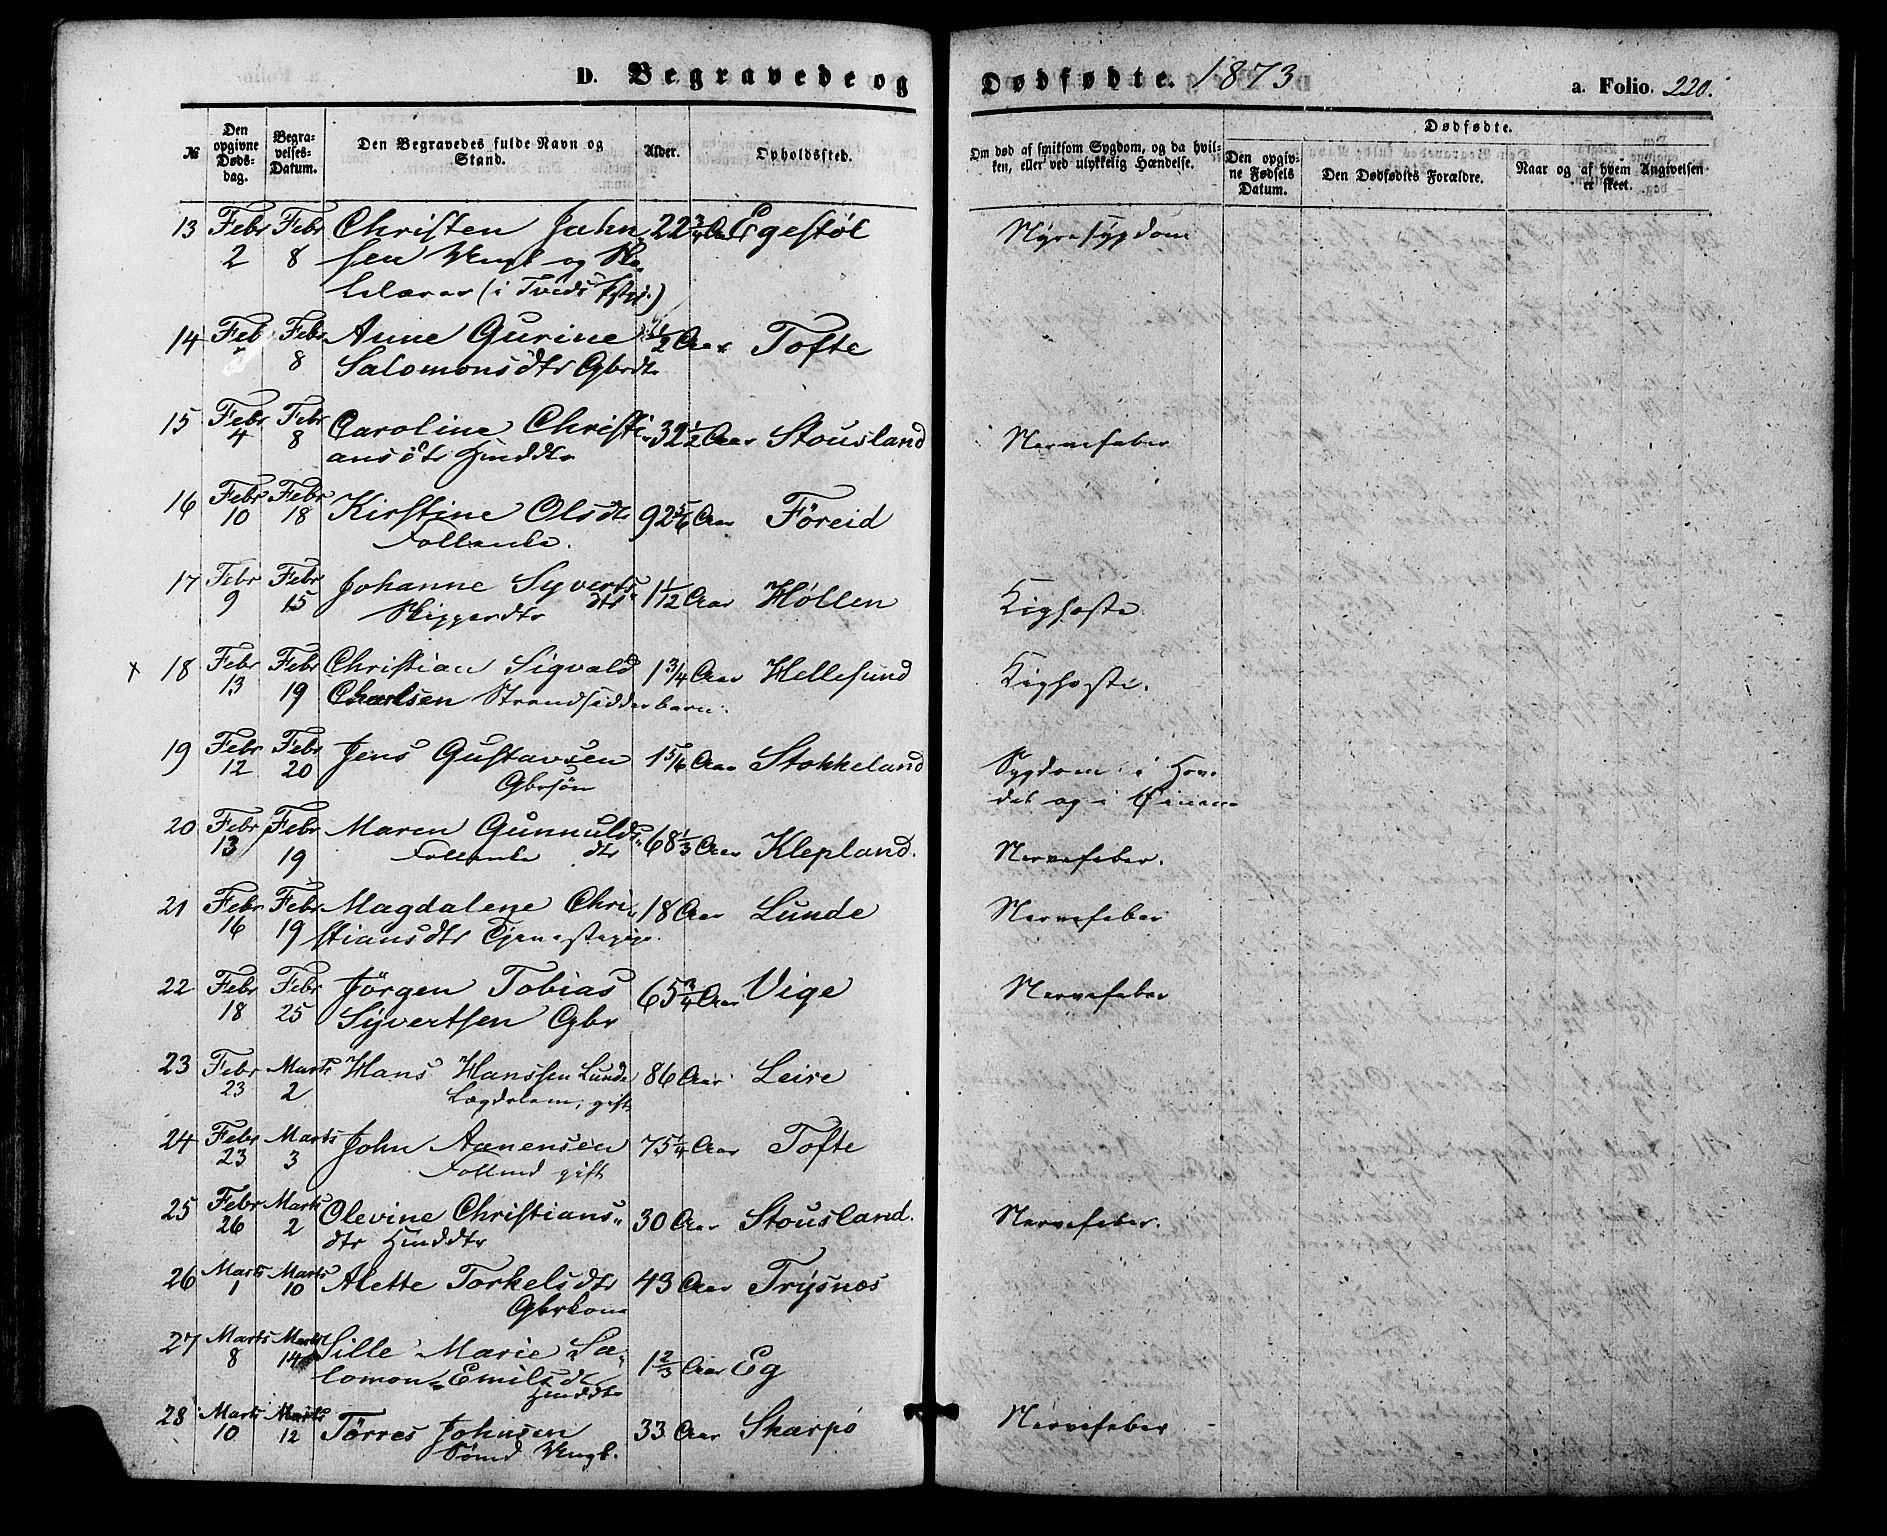 D. Begravede og Dødfødte. 1873 a. Folio. 220.
№
Den opgivne Døds-dag.
Begra-velses-Datum.
Den Begravedes fulde Navn og Stand.
Alder.
Opholdssted.
Om død af smitsom Sygdom, og da hvil-ken, eller ved ulykkelig Hændelse.
Dødfødte.
Den opgiv-ne Fødsels Datum.
Den Dødfødtes Forældre.
Naar og af hvem Angivelsen er skeet.
13 Febr 2 Febr 8 Christen John 22 3/4 Aar Egestøl Nyresygdom
sen Ungk og
(i Tveds
14 Feb Febr 8 Anne Gurine 1/2 Aar Tofte
Salomonsdtr Gbrdtr
15 Febr 4 Febr 8 Caroline Christi 32 1/2 Aar Stousland Nervefeber
ansdtr Hmddtr
16 Febr 10 Febr 18 Kirstine Olsdtr 92 5/6 Aar Föreid
Follenke.
17 Febr 9 Febr 15 Johanne Syverts 1 1/12 Aar Höllen Kighoste
dtr
Skipperdtr
18 Febr 13 Febr 19 Christian Sigvald 1 3/4 Aar Hellesund Kighoste.
Charlsen Strandsidderbarn.
19 Febr 12 Febr 20 Jens Gustavsen 1 5/6 Aar Stokkeland Sygdom i Hove
Gbrsön det og i Öinene
20 Febr 13 Febr 19 Maren Gunnulds 68 1/3 Aar Klepland. Nervefeber.
Follenke dtr
21 Febr 16 Febr 19 Magdalene Chri 18 Aar Lunde Nervefeber
stiansdtr Tjenestepige.
22 Febr 18 Febr 25 Jörgen Tobias 65 3/4 Aar Vige Nervefeber
Syvertsen Gbr
23 Febr 23 Marts 2 Hans Hanssen Lunde 86 Aar Leire
Lægdslem, gift
24 Febr 23 Marts 3 John Aanensen 75 1/4 Aar Tofte
Follmd gift
25 Febr 26 Marts 2 Olevine Christians 30 Aar Stousland. Nervefeber.
dtr Hmddtr
26 Marts 1 Marts 10 Alette Torkelsdtr 43 Aar Trysnes
Gbrkone
27 Marts 8 Marts 14 Sille Marie Sa 1 2/3 Aar Eg
lomon Emilsdtr
Hmddtr
28 Marts 10 Marts 12 Törres Johnsen 33 Aar Skarpö Nervefeber
Sömd Ungk.